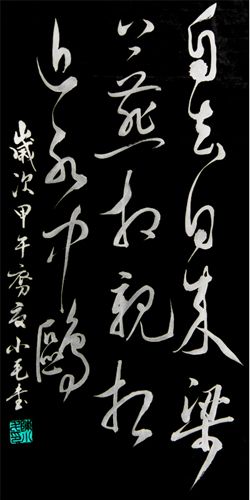 自去自来梁
上燕相親相
近水中鷗
歲次甲午秀夜小毛書